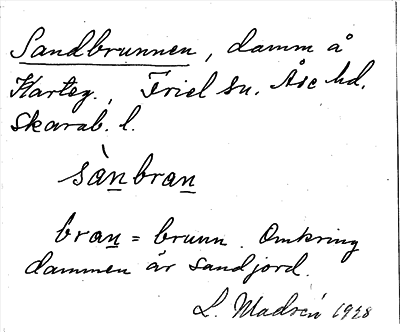 Sandbrunnen, damm å
Karteg., Friel sn. Åse hd.
Skarab. l.
sàn bran
bran = brunn. Omkring
dammen är sandjord.
L. Madsén 1928